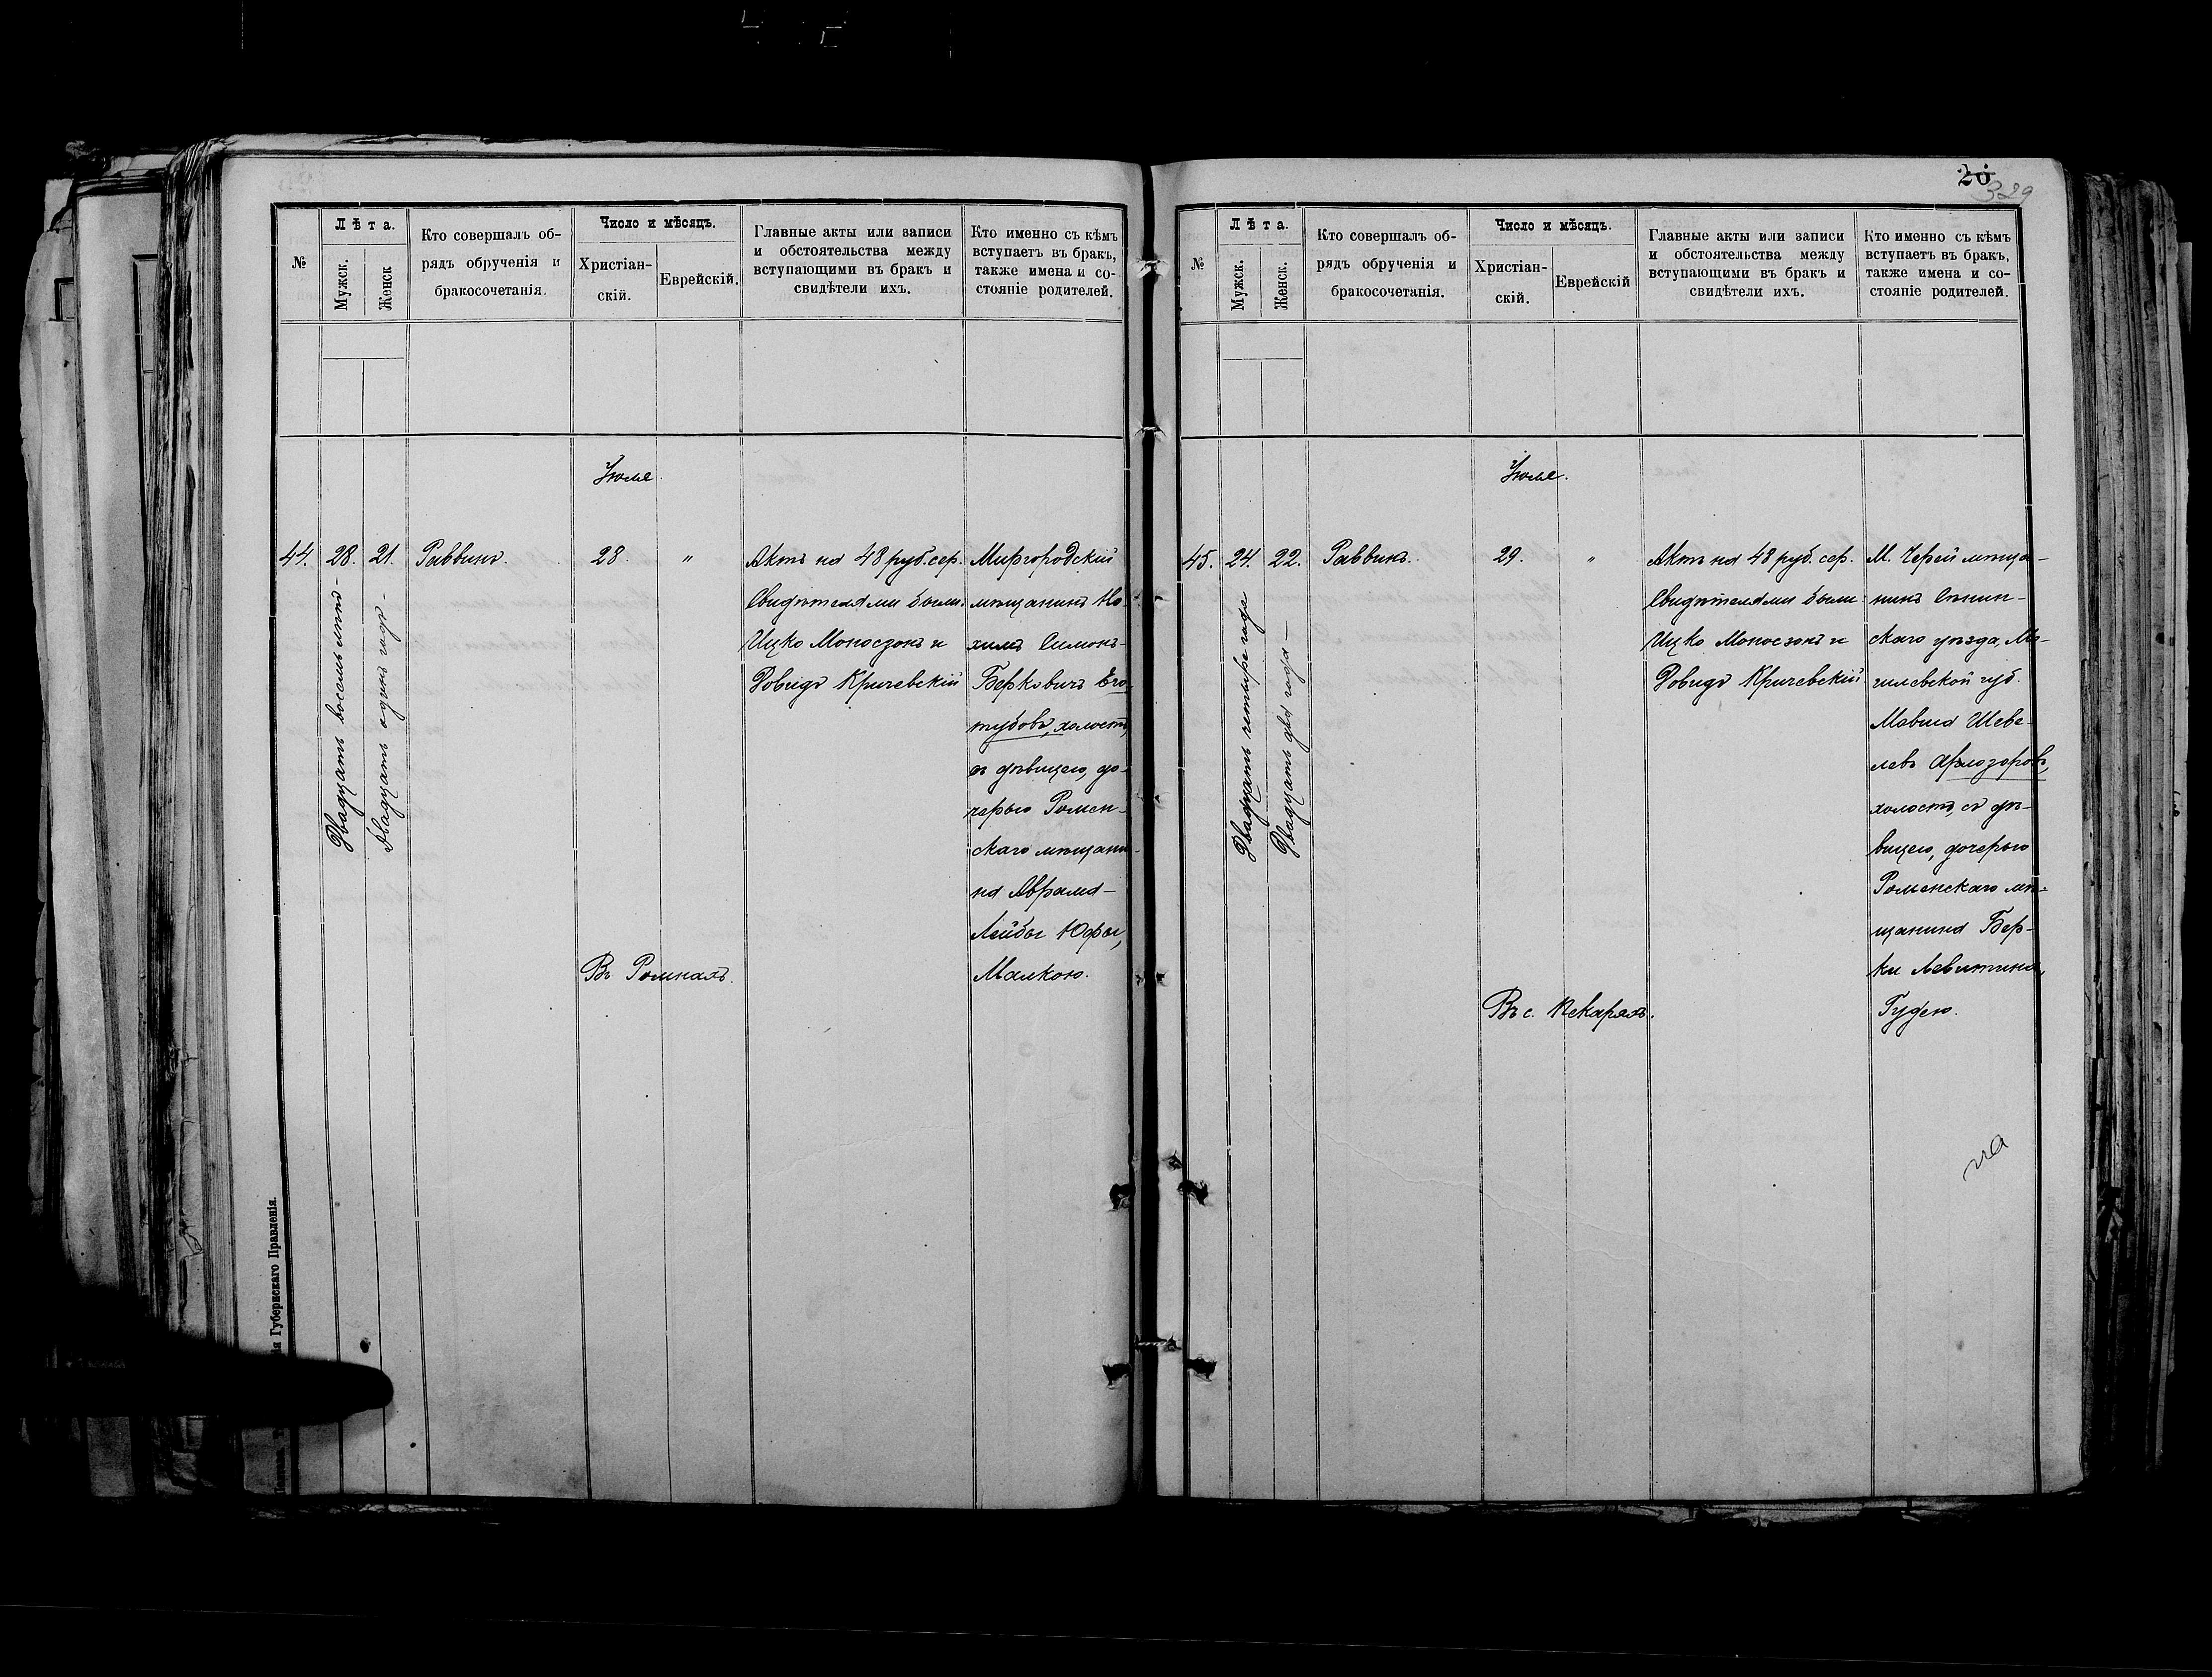 20
329
№
Лѣта.
Мужск.
Женск
Кто совершалъ об-
рядъ обрученія и
бракосочетанія.
Число и мѣсяцъ.
Христіан-
скій.
Еврейскій.
Главные акты или записи
и обстоятельства между
вступающими въ бракъ и
свидѣтели ихъ.
Кто именно съ кѣмъ
вступаетъ въ бракъ,
также имена и со-
стояніе родителей.
Іюля.
44.
28.
Двадцать восемь лѣтъ-
21.
Двадцать одинъ годъ-
Раввинъ.
28.
"
Въ Ромнахъ.
Актъ на 48 руб. сер.
Свидѣтелями были:
Ицко Моносзонъ и
Довидъ Кричевскій
Миргородскій
мѣщанинъ Но-
химъ Симонъ-
Берковичъ Бго-
тубовъ, холостъ,
съ дѣвицею, до-
черью Ромен-
скаго мѣщани-
на Аврама-
Лейбы Юфы,
Малкою.
ія Губернскаго Правленія.
№
Лѣта.
Мужск.
Женск.
Кто совершалъ об-
рядъ обрученія и
бракосочетанія.
Число и мѣсяцъ.
Христіан-
скій.
Еврейскій
Главные акты или записи
и обстоятельства между
вступающими въ бракъ и
свидѣтели ихъ.
Кто именно съ кѣмъ
вступаетъ въ бракъ,
также имена и со-
стояніе родителей.
Іюля.
45.
24.
Двадцать четыре года
22.
Двадцать два года-
Раввинъ.
29.
"
Въ с. Пекаряхъ.
Актъ на 48 руб. сер.
Свидѣтелями были:
Ицко Моносзонъ и
Довидъ Кричевскій
М. Черей мѣща-
нинъ Сѣнин-
скаго уѣзда, Мо-
гилевской губ.
Мовша Шеве-
левъ Арлозоровъ,
холостъ, съ дѣ-
вицею, дочерью
Роменскаго мѣ-
щанина Бер-
ки Левитина,
Гудею.